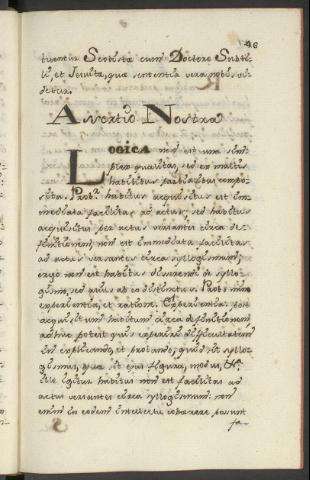 46
tiventur Scotista cum Doctore Subti-
li, et Jesuita, quæ sententia vera nobis vi-
detur.
Assertio Nostra
LOGICA non est una sim-
plex qualitas, sed ex multis
habitibus partialibus compo-
sita. Prob.r habitus acquisitus est im-
mediata facilitas ad actus; sed habitus
acquisitus per actus versantes circa de-
finitionem, non est immediata facilitas
ad actus versantes circa syllogismum;
ergo non est habitus disserendi de syllo-
gismo, sed alius ab eo distinctus. Prob. min.
experientia, et ratione. Experientia: post
acquisitum habitum circa definitionem
adhuc potest quis experiri difficultatem
in explicando, et probando, quid sit syllo-
gismus, quæ sit ejus figura, modus,
ille igitur habitus non est facilitas ad
actus versantes circa syllogismum: non
enim in eodem intellectu cohærere possunt
fa-